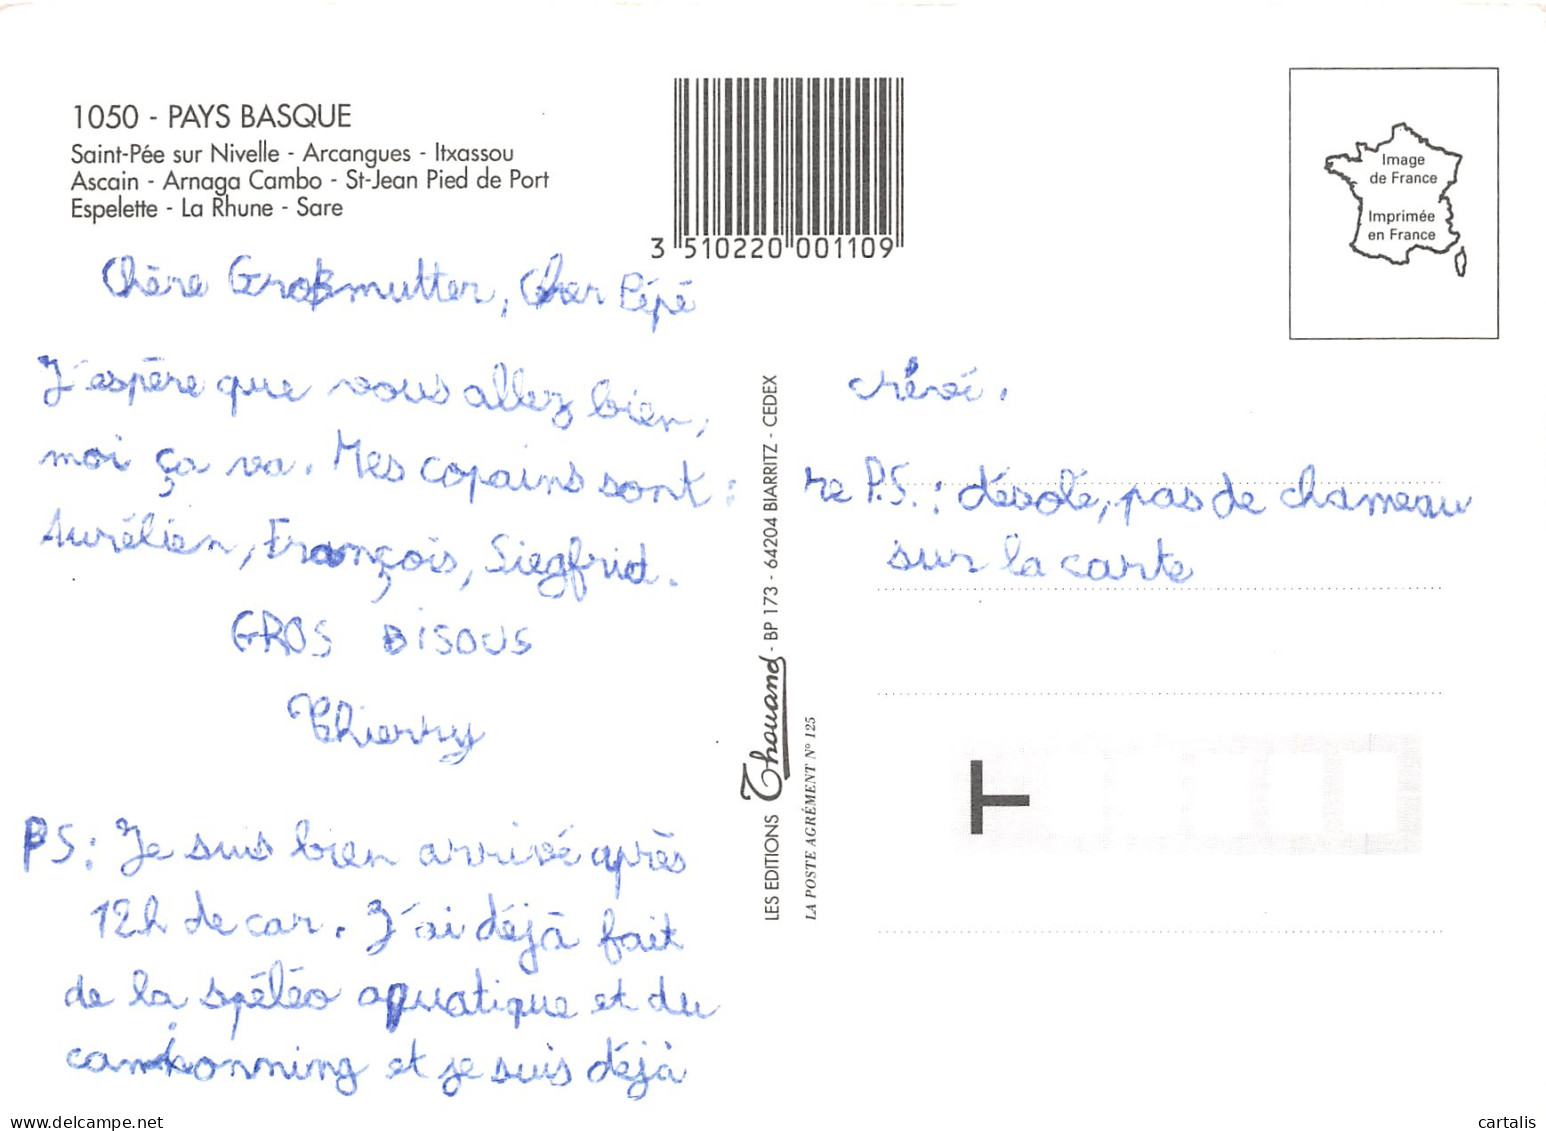 1050 - PAYS BASQUE
Saint-Pée sur Nivelle - Arcangues - Itxassou
Ascain - Arnaga Cambo - St-Jean Pied de Port
Espelette - La Rhune - Sare
3 510220 001109
Image
de France
Imprimée
en France
Chère Großmutter, Cher Pépé
J'espère que vous allez bien,
moi ça va. Mes copains sont :
Aurélien, François, Siegfrid.
GROS BISOUS
Thierry
PS : Je suis bien arrivé après
12h de car. J'ai déjà fait
de la spéléo aquatique et du
et je suis déjà
crévé.
re P.S. : désolé, pas de chameau
sur la carte
LES EDITIONS Thouand - BP 173 - 64204 BIARRITZ - CEDEX
LA POSTE AGRÉMENT N° 125
T
delcampe.net
cartalis